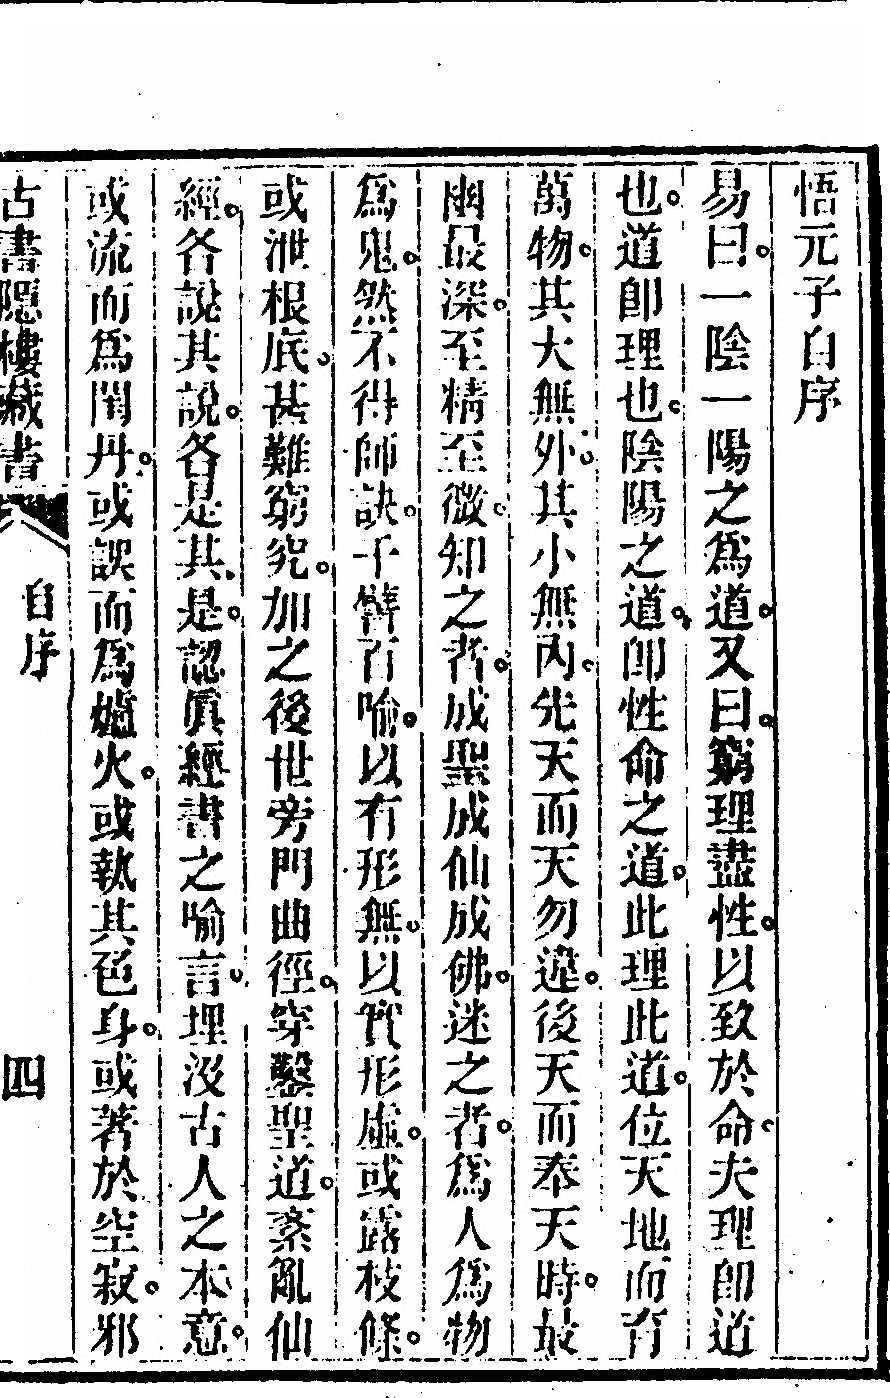 悟元子自序
易曰。一陰一陽之爲道。又曰。窮理盡性。以致於命。夫理卽道
也。道卽理也。陰陽之道。卽性命之道。此理此道。位天地而育
萬物。其大無外。其小無內。先天而天勿違。後天而奉天時。最
幽最深。至精至微。知之者。成聖成仙成佛。迷之者。爲人爲物
爲鬼。然不得師訣。千譬百喻。以有形無。以實形虛。或露枝條。
或泄根底。甚難窮究。加之後世旁門曲徑。穿鑿聖道。紊亂仙
經。各說其說。各是其是。認眞經書之喻言。埋沒古人之本意。
或流而爲閨丹。或誤而爲爐火。或執其色身。或著於空寂。邪
古書隱樓藏書
自序
四